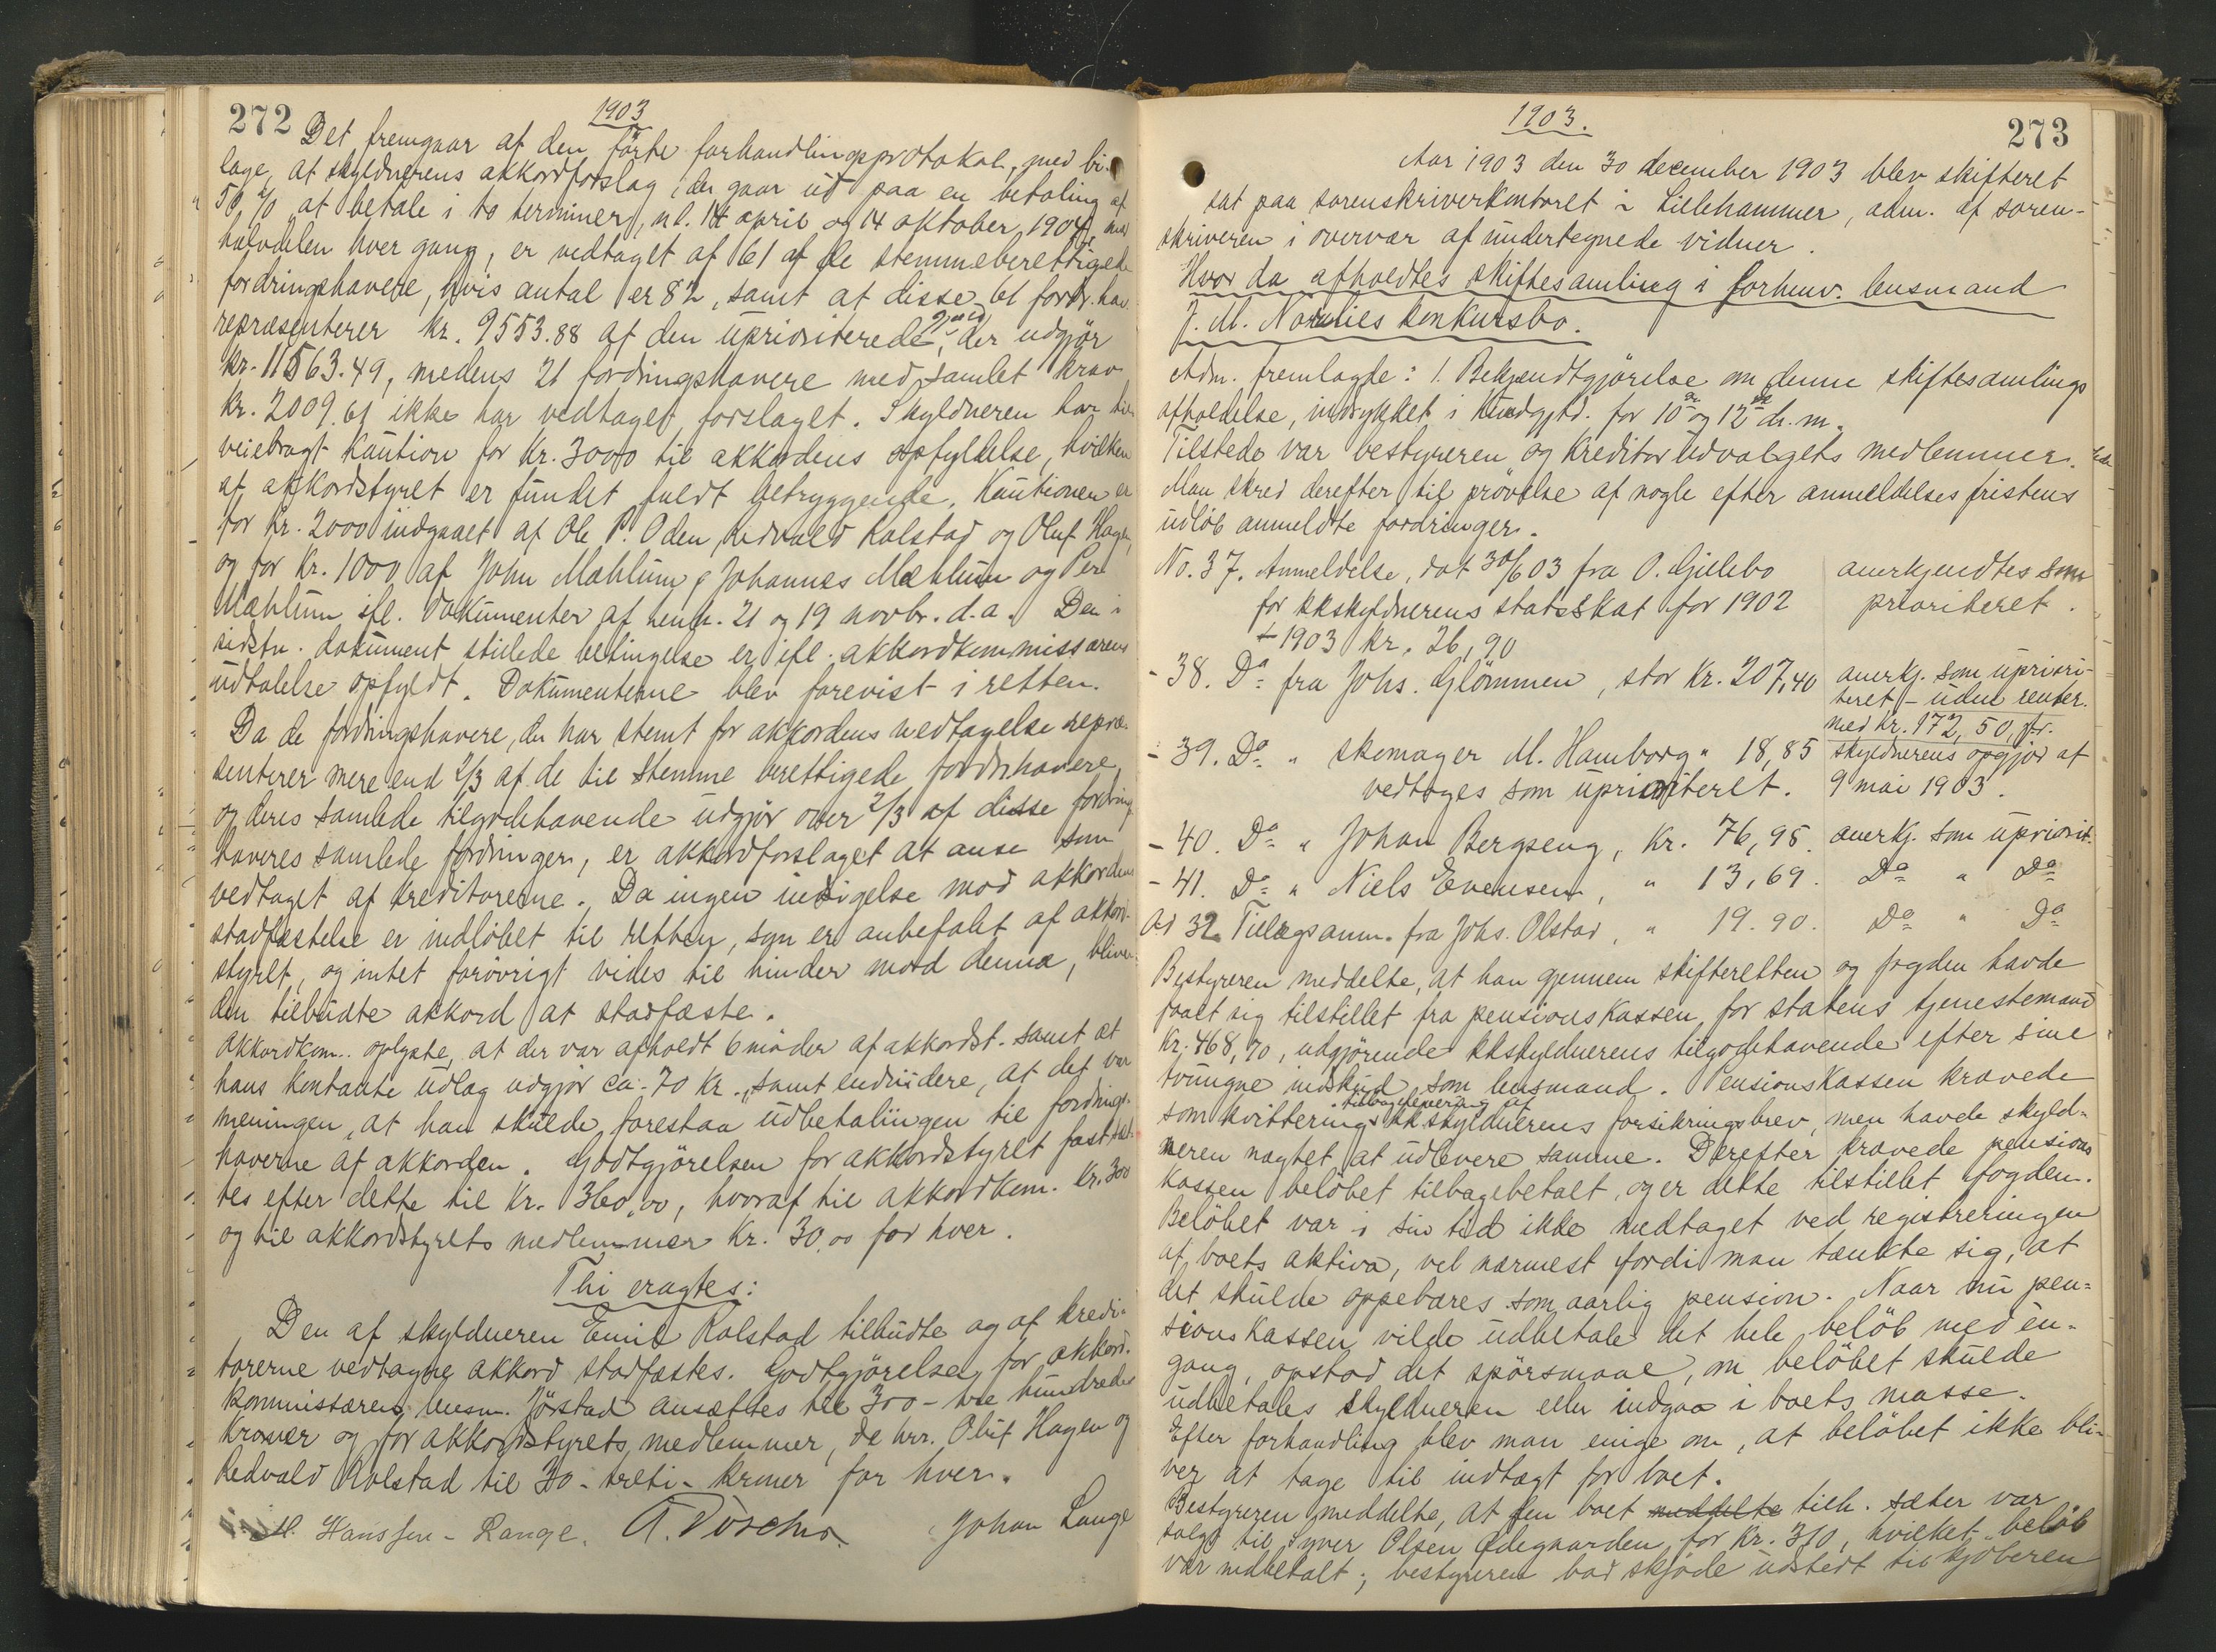 272
1903
Det fremgaar af den førte forhandlingsprotokol, med bi-
lage, at skyldnerens akkordforslag, der gaar ud paa en betaling af
50 % at betale i to terminer, nl. 14 april og 14 oktober 1904, med
halvdelen hver gang, er vedtaget af 61 af de stemmeberettigede
fordringshavere, hvis antal er 82, samt at disse 61 fordr.hav.
repræsenterer kr. 9553.88 af den uprioriterede gjæld, der udgjør
kr. 11563.49, medens 21 fordringshavere med samlet krav
kr. 2009.61 ikke har vedtaget forslaget. Skyldneren har til-
veiebragt kaution for kr. 3000 til akkordens opfyldelse, hvilken
af akkordstyret er fundet fuldt betryggende. Kautionen er
for kr. 2000 indgaaet af Ole P. Oden, Redvald Kolstad og Oluf Hagen,
og for kr. 1000 af John Mæhlum, Johannes Mæhlum og Per
Mæhlum ifl. dokumenter af henh. 21 og 19 novbr. d.a. Den i
sidstn. dokument stillede betingelse er ifl. akkordkommissærens
udtalelse opfyldt. Dokumenterne blev forevist i retten.
Da de fordringshavere, der har stemt for akkordens vedtagelse repræ-
senterer mere end 2/3 af de til stemme berettigede fordr.havere
og deres samlede tilgodehavende udgjør over 2/3 af disse fordrings-
haveres samlede fordringer, er akkordforslaget at anse som
vedtaget af kreditorerne. Da ingen indsigelse mod akkordens
stadfæstelse er indløbet til retten, som er anbefalet af akkord-
styret, og intet forøvrigt vides til hinder mod denne, bliver
den tilbudte akkord at stadfæste.
Akkordkom. oplyste, at der var afholdt 6 møder af akkordst. samt at
hans kontante udlæg udgjør ca. 70 kr., samt endvidere, at det var
meningen, at han skulde forestaa udbetalingen til fordrings-
haverne af akkorden. Godtgjørelsen for akkordstyret fastsat-
tes efter dette til kr. 360,00, hvoraf til akkordkom. kr. 300
og til akkordstyrets medlemmer kr. 30,00 for hver.
Thi eragtes:
Den af skyldneren Emil Kolstad tilbudte og af kredi-
torerne vedtagne akkord stadfæstes. Godtgjørelsen for akkord-
kommissæren, lensm. Jørstad ansættes til 300 - tre hundrede
kroner og for akkordstyrets medlemmer, de hrr. Oluf Hagen og
Redvald Kolstad til 30 - treti - kroner for hver.
M. Hanssen-Lange. Johan Lange
273
1903.
Aar 1903 den 30 december 1903 blev skifteret
sat paa sorenskriverkontoret i Lillehammer, adm. af soren-
skriveren i overvær af undertegnede vidner.
Hvor da afholdtes skiftesamling i forhenv. lensmand
J. M. Nordlies konkursbo.
Adm. fremlagde: 1. Bekjendtgjørelse om denne skiftesamlings
afholdelse, indrykket i Kundgjtd. for 10de og 12te ds. m.
Tilstede var bestyreren og kreditorudvalgets medlemmer.
Man skred derefter til prøvelse af nogle efter anmeldelsesfristens
udløb anmeldte fordringer.
No. 37. Anmeldelse, dat 30/6 03 fra O. Gillebo anerkjendtes som
for kkskyldnerens statsskat for 1902 prioriteret.
+ 1903 kr. 26,90
- 38. Do fra Johs. Glømmen, stor kr. 207,40 anerkj. som upriori-
teret - uden renter.
med kr. 172,50, jfr.
- 39. Do " skomager M. Hamborg " 18,85 skyldnerens opgjør af
vedtoges som uprioriteret. 9 mai 1903.
- 40. Do " Johan Bergseng, kr. 76,95. anerkj. som upriorit.
- 41. Do " Niels Evensen, " 13,69. Do " Do
Ad 32. Tillægsanm. fra Johs. Olstad, " 19.90. Do " Do
Bestyreren meddelte, at han gjennem skifteretten og fogden havde
faaet sig tilstillet fra pensionskassen for statens tjenestemænd
kr. 468,70, udgjørende kkskyldnerens tilgodehavende efter sine
tvungne indskud som lensmand. Pensionskassen krævede
tilbagelevering af
som kvittering kkskyldnerens forsikringsbrev, men havde skyld-
neren nægtet at udlevere samme. Derefter krævede pensions
kassen beløbet tilbagebetalt, og er dette tilstillet fogden.
Beløbet var i sin tid ikke medtaget ved registreringen
af boets aktiva, vel nærmest fordi man tænkte sig, at
det skulde oppebæres som aarlig pension. Naar nu pen-
sionskassen vilde udbetale det hele beløb med én-
gang, opstod det spørsmaal, om beløbet skulde
udbetales skyldneren eller indgaa i boets masse.
Efter forhandling blev man enige om, at beløbet ikke bli-
ver at tage til indtægt for boet.
Bestyreren meddelte, at den boet meddelte tilh. sæter var
solgt til Syver Olsen Ødegaarden for kr. 310, hvilket beløb
var indbetalt; bestyreren bad skjøde udstedt til kjøberen